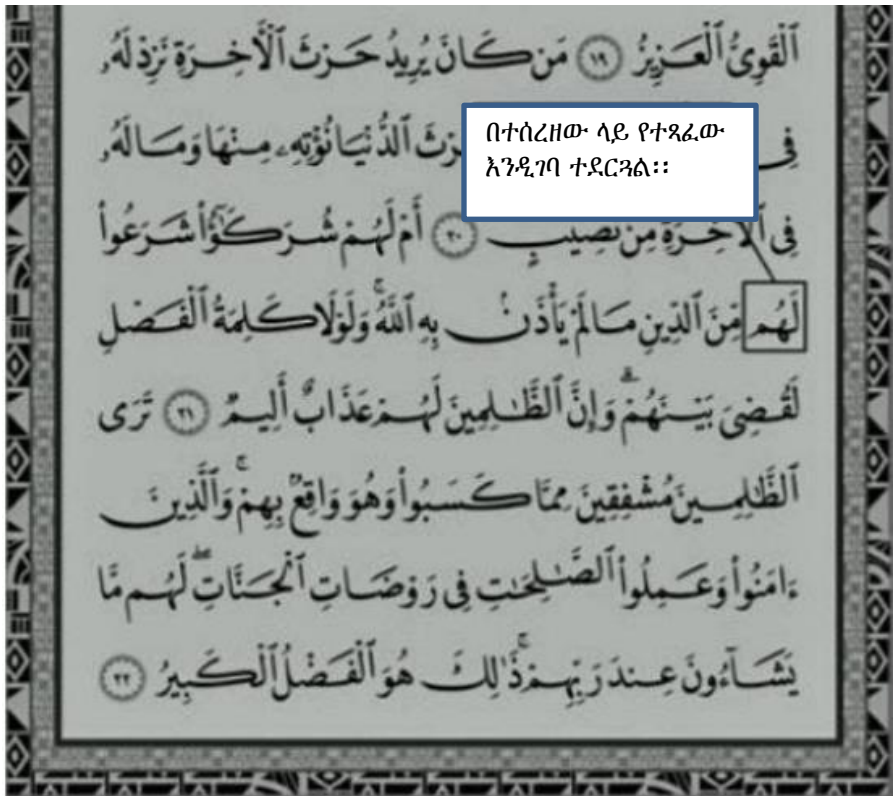 ٱلۡقَوِىُّ ٱلۡعَزِيزُ ١٩ مَن كَانَ يُرِيدُ حَرۡثَ ٱلۡأٓخِرَةِ نَزِدۡ لَهُۥ
فِى رۡثَ ٱلدُّنۡيَا نُؤۡتِهِۦ مِنۡهَا وَمَا لَهُۥ
በተሰረዘው ላይ የተጻፈው
እንዲገባ ተደርጓል፡፡
فِى ٱلۡأٓخِرَةِ مِن نَّصِيبٍ ٢٠ أَمۡ لَهُمۡ شُرَكَٰٓؤُاْ شَرَعُواْ
لَهُم مِّنَ ٱلدِّينِ مَا لَمۡ يَأۡذَنۢ بِهِ ٱللَّهُۚ وَلَوۡلَا كَلِمَةُ ٱلۡفَصۡلِ
لَقُضِىَ بَيۡنَهُمۡۗ وَإِنَّ ٱلظَّٰلِمِينَ لَهُمۡ عَذَابٌ أَلِيمٌ ٢١ تَرَى
ٱلظَّٰلِمِينَ مُشۡفِقِينَ مِمَّا كَسَبُواْ وَهُوَ وَاقِعُۢ بِهِمۡۚ وَٱلَّذِينَ
ءَامَنُواْ وَعَمِلُواْ ٱلصَّٰلِحَٰتِ فِى رَوۡضَاتِ ٱلۡجَنَّاتِۖ لَهُم مَّا
يَشَآءُونَ عِندَ رَبِّهِمۡۚ ذَٰلِكَ هُوَ ٱلۡفَضۡلُ ٱلۡكَبِيرُ ٢٢